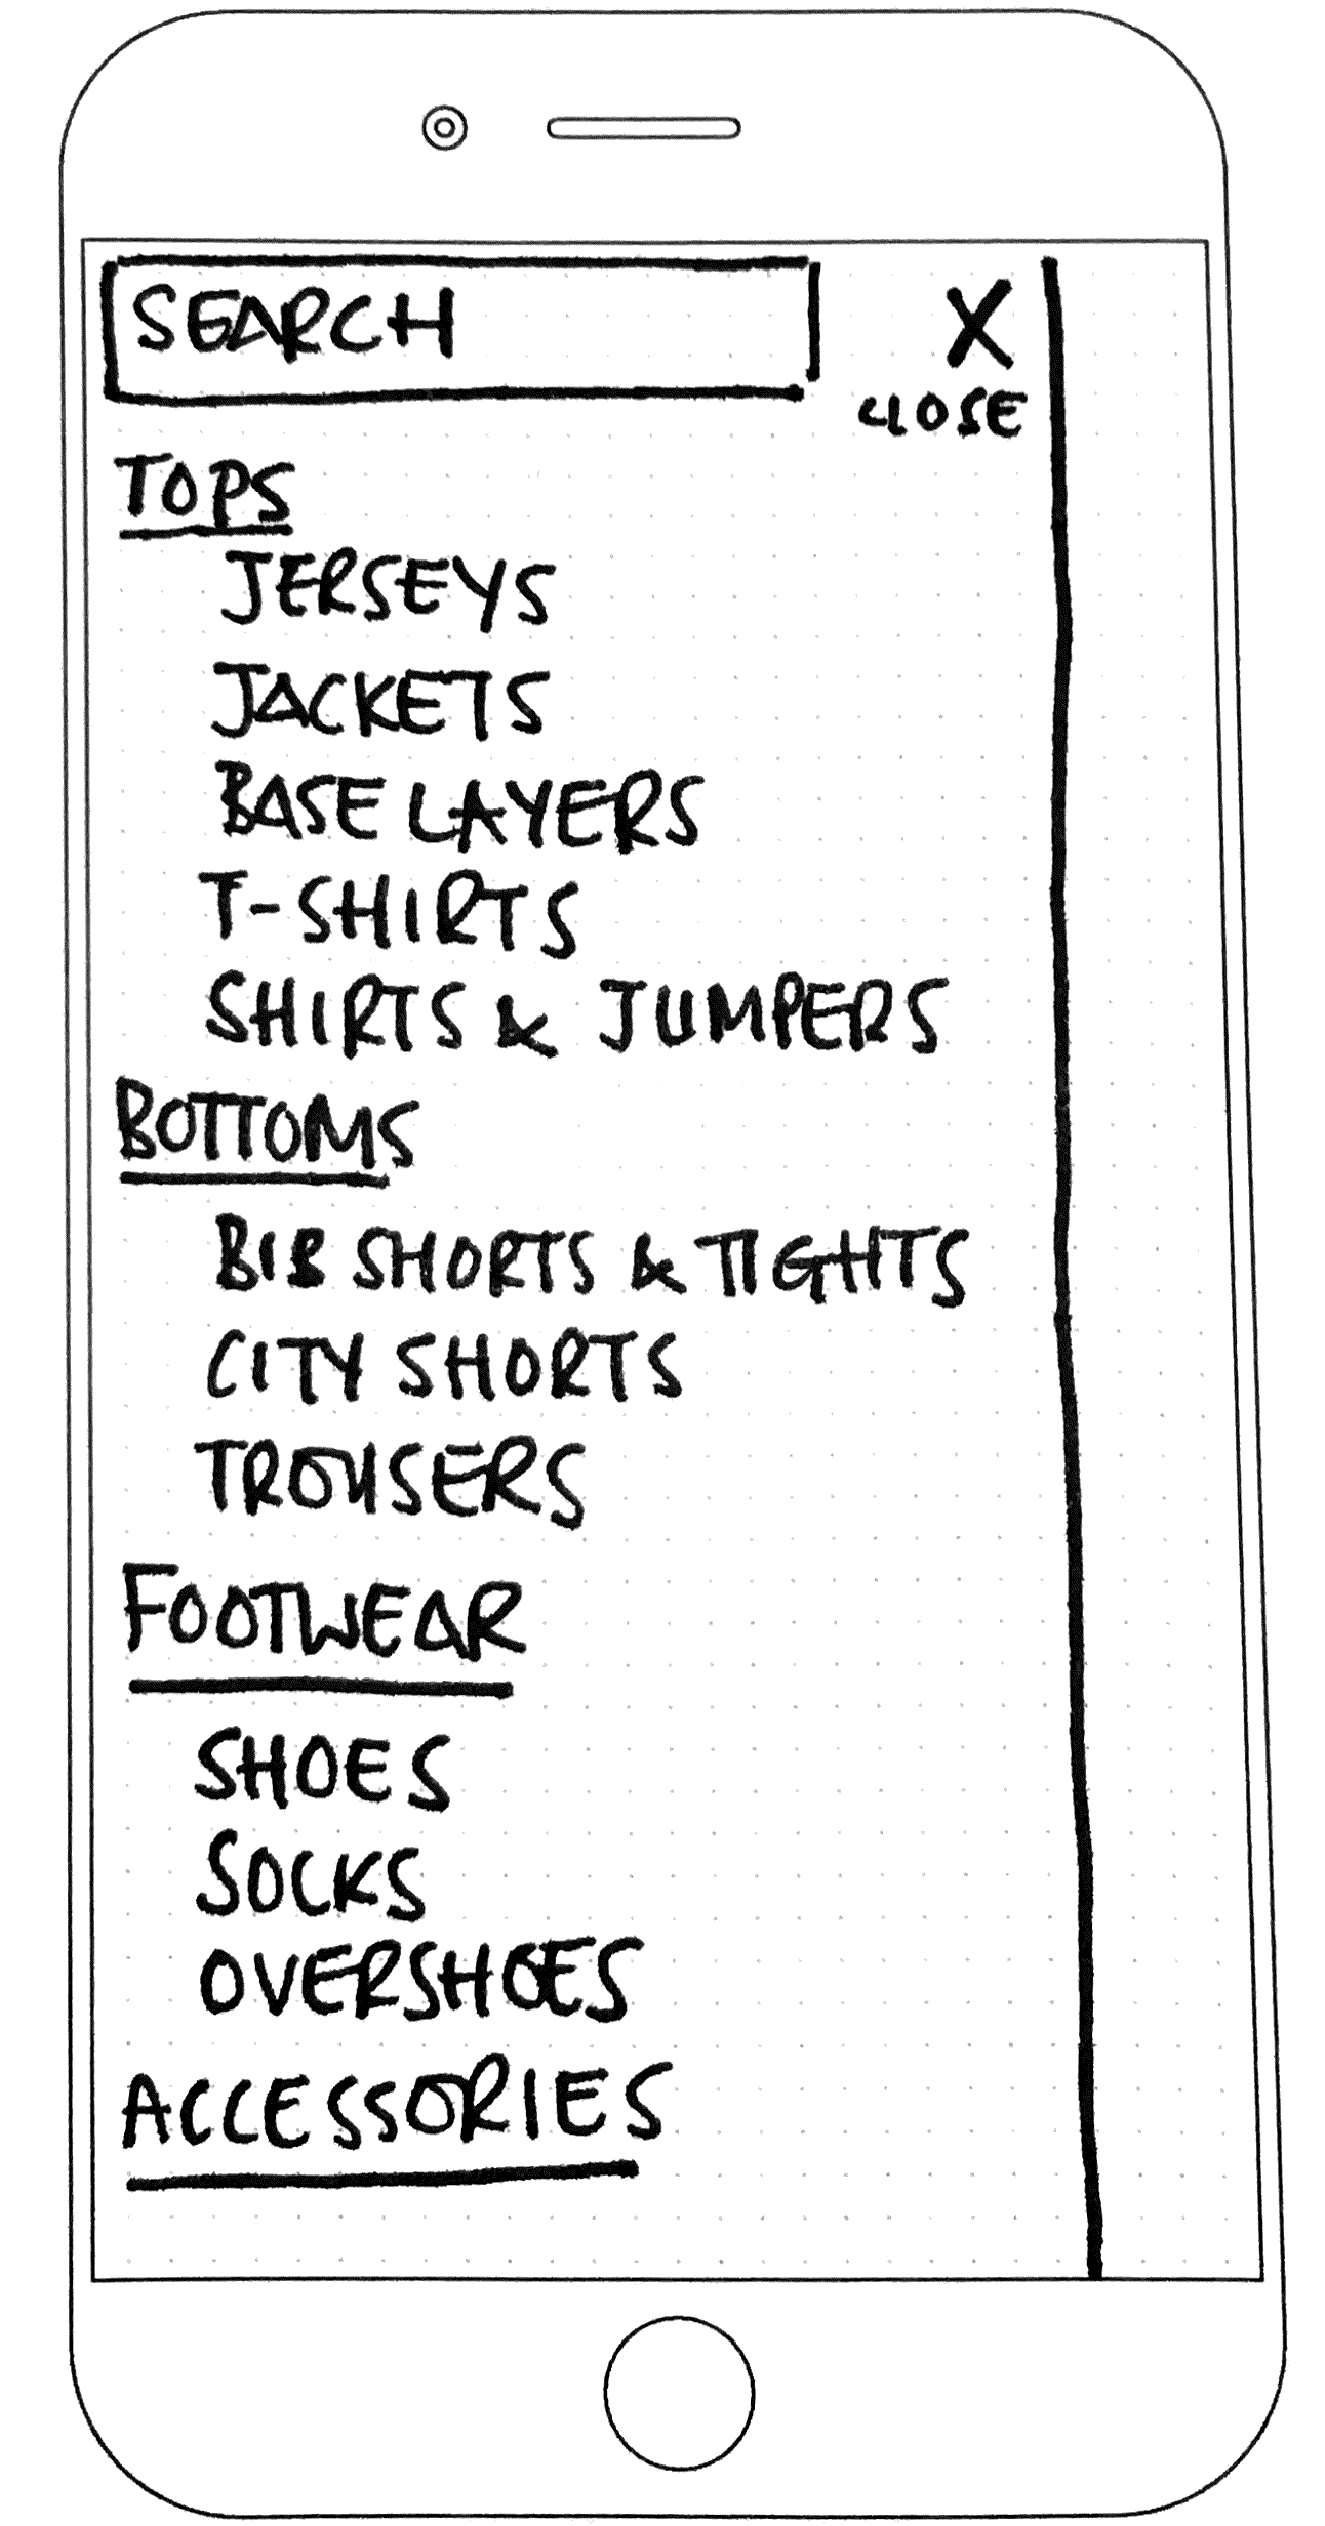 SEARCH
X
CLOSE
TOPS
JERSEYS
JACKETS
BASE LAYERS
T-SHIRTS
SHIRTS & JUMPERS
BOTTOMS
BIB SHORTS & TIGHTS
CITY SHORTS
TROUSERS
FOOTWEAR
SHOES
SOCKS
OVERSHOES
ACCESSORIES